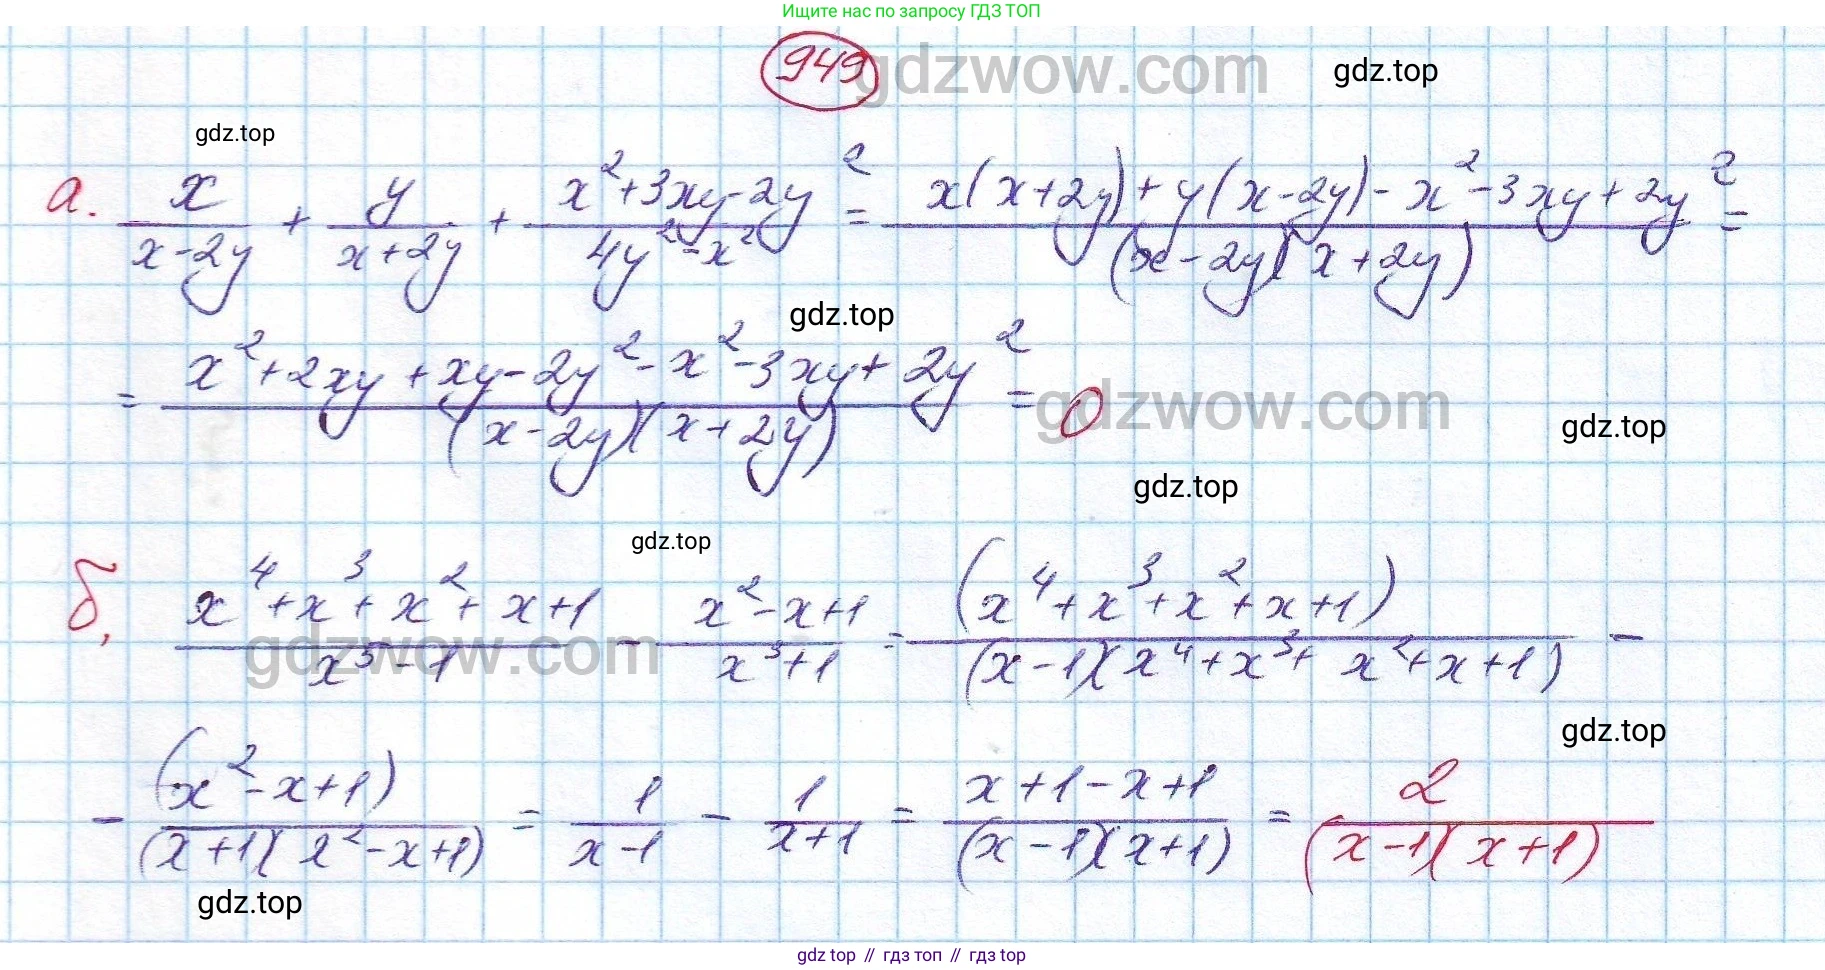 Ищите нас по запросу ГДЗ ТОП
949
gdzwow.com
gdz.top
gdz.top
а. x/(x-2y) + y/(x+2y) + (x²+3xy-2y²)/(4y²-x²) = (x(x+2y)+y(x-2y)-x²-3xy+2y²)/((x-2y)(x+2y)) =
gdz.top
= (x²+2xy+xy-2y²-x²-3xy+2y²)/((x-2y)(x+2y)) = 0
gdzwow.com
gdz.top
gdz.top
gdz.top
б, (x⁴+x³+x²+x+1)/(x⁵-1) - (x²-x+1)/(x³+1) = (x⁴+x³+x²+x+1)/((x-1)(x⁴+x³+x²+x+1)) -
gdzwow.com
gdz.top
- (x²-x+1)/((x+1)(x²-x+1)) = 1/(x-1) - 1/(x+1) = (x+1-x+1)/((x-1)(x+1)) = 2/((x-1)(x+1))
gdz.top
gdz top // гдз топ // гдз top